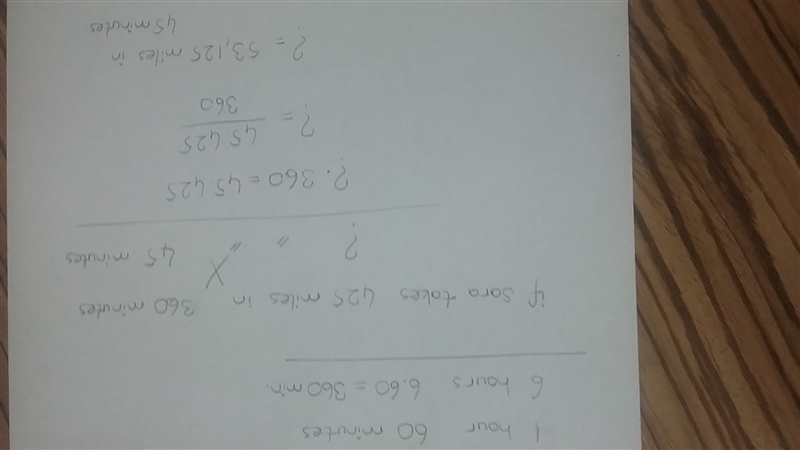 1 hour 60 minutes
6 hours 6.60 = 360 min.
if Sara takes 425 miles in 360 minutes
? " " X 45 minutes
? . 360 = 45 425
? = 45 425 / 360
? = 53,125 miles in
45 minutes